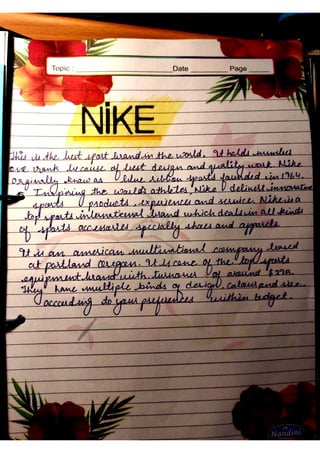 Topic : Date Page
NiKE
This is the best sport brand in the world. It holds number
one rank because of best design and quality work. Nike
originally know as blue ribbon sports founded in 1964.
Inspiring the world's athletes, Nike delivers innovative
sports products, experiences and service. Nike is a
top sports international brand which deals in all kinds
of sports accessories specially shoes and apparels
It is an american multinational company based
at portland Oregan. It is one of the top sports
equipment brand with turnover of around
They have multiple kinds of design, colours and size.
according do your preferences within budget.
Nandini